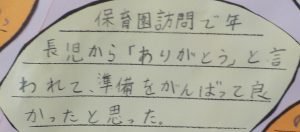 保育園訪問で年
長児から「ありがとう」と言
われて、準備をがんばって良
かったと思った。